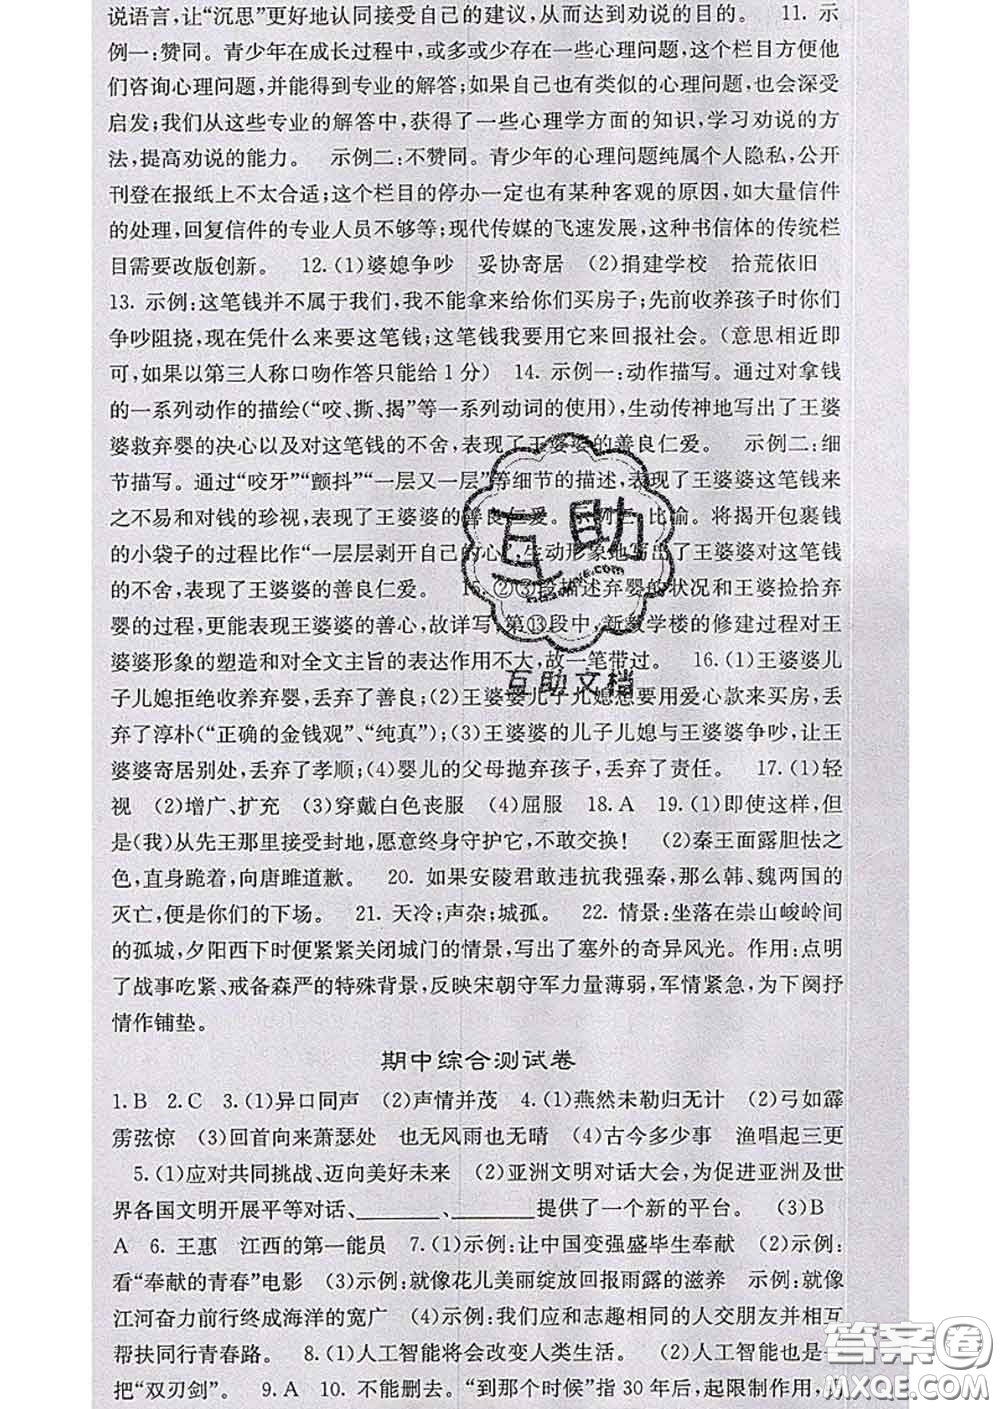 说语言,让“沉思”更好地认同接受自己的建议,从而达到劝说的目的。 11. 示
例一:赞同。青少年在成长过程中,或多或少存在一些心理问题,这个栏目方便他
们咨询心理问题,并能得到专业的解答;如果自己也有类似的心理问题,也会深受
启发;我们从这些专业的解答中,获得了一些心理学方面的知识,学习劝说的方
法,提高劝说的能力。 示例二:不赞同。青少年的心理问题纯属个人隐私,公开
刊登在报纸上不太合适;这个栏目的停办一定也有某种客观的原因,如大量信件
的处理,回复信件的专业人员不够等;现代传媒的飞速发展,这种书信体的传统栏
目需要改版创新。 12.(1)婆媳争吵 妥协寄居 (2)捐建学校 拾荒依旧
13. 示例:这笔钱并不属于我们,我不能拿来给你们买房子;先前收养孩子时你们
争吵阻挠,现在凭什么来要这笔钱;这笔钱我要用它来回报社会。(意思相近即
可,如果以第三人称口吻作答只能给1分) 14. 示例一:动作描写。通过对拿钱
的一系列动作的描绘(“咬、撕、揭”等一系列动词的使用),生动传神地写出了王婆
婆救弃婴的决心以及对这笔钱的不舍,表现了王婆婆的善良仁爱。 示例二:细
节描写。通过“咬牙”“颤抖”“一层又一层”等细节的描述,表现了王婆婆这笔钱来
之不易和对钱的珍视,表现了王婆婆的善良仁爱。 比喻。将揭开包裹钱
的小袋子的过程比作“一层层剥开自己的心”,生动形象地写出了王婆婆对这笔钱
的不舍,表现了王婆婆的善良仁爱。 15.②③段描述弃婴的状况和王婆捡拾弃
婴的过程,更能表现王婆婆的善心,故详写;第⑬段中,新教学楼的修建过程对王
婆婆形象的塑造和对全文主旨的表达作用不大,故一笔带过。 16.(1)王婆婆儿
子儿媳拒绝收养弃婴,丢弃了善良;(2)王婆婆儿子儿媳想要用爱心款来买房,丢
弃了淳朴(“正确的金钱观”、“纯真”);(3)王婆婆的儿子儿媳与王婆婆争吵,让王
婆婆寄居别处,丢弃了孝顺;(4)婴儿的父母抛弃孩子,丢弃了责任。 17.(1)轻
视 (2)增广、扩充 (3)穿戴白色丧服 (4)屈服 18.A 19.(1)即使这样,但
是(我)从先王那里接受封地,愿意终身守护它,不敢交换! (2)秦王面露胆怯之
色,直身跪着,向唐雎道歉。 20. 如果安陵君敢违抗我强秦,那么韩、魏两国的
灭亡,便是你们的下场。 21. 天冷;声杂;城孤。 22. 情景:坐落在崇山峻岭间
的孤城,夕阳西下时便紧紧关闭城门的情景,写出了塞外的奇异风光。作用:点明
了战事吃紧、戒备森严的特殊背景,反映宋朝守军力量薄弱,军情紧急,为下阕抒
情作铺垫。
期中综合测试卷
1.B 2.C 3.(1)异口同声 (2)声情并茂 4.(1)燕然未勒归无计 (2)弓如霹
雳弦惊 (3)回首向来萧瑟处 也无风雨也无晴 (4)古今多少事 渔唱起三更
5.(1)应对共同挑战、迈向美好未来 (2)亚洲文明对话大会,为促进亚洲及世
界各国文明开展平等对话、________、________提供了一个新的平台。 (3)B
A 6. 王惠 江西的第一能员 7.(1)示例:让中国变强盛毕生奉献 (2)示例:
看“奉献的青春”电影 (3)示例:就像花儿美丽绽放回报雨露的滋养 示例:就像
江河奋力前行终成海洋的宽广 (4)示例:我们应和志趣相同的人交朋友并相互
帮扶同行青春路。 8.(1)人工智能将会改变人类生活。 (2)人工智能也是一
把“双刃剑”。 9.A 10. 不能删去。“到那个时候”指30年后,起限制作用,
互助
互助文档
答案圈
MXQE.COM